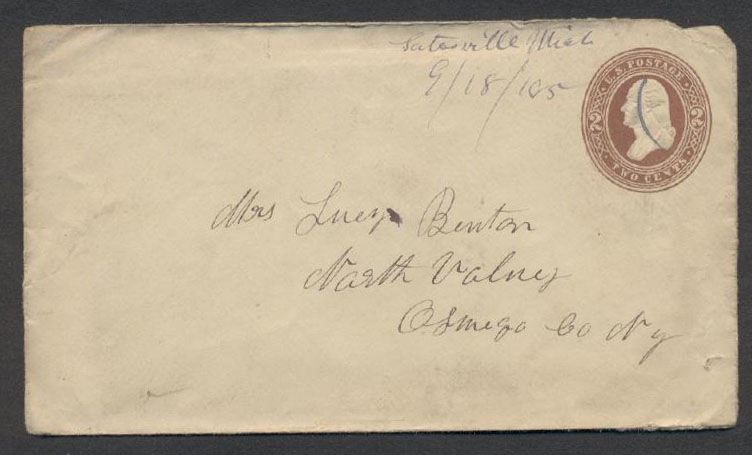 Satesville Mich
9/18/85
U.S. POSTAGE
2 2
TWO CENTS
Mrs Lucy Benton
North Volney
Oswego Co N y